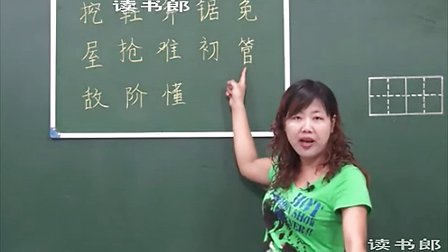 读书郎
挖 鞋 锯 免
屋 抢 难 初 管
敌 阶 懂
HOT
读书郎